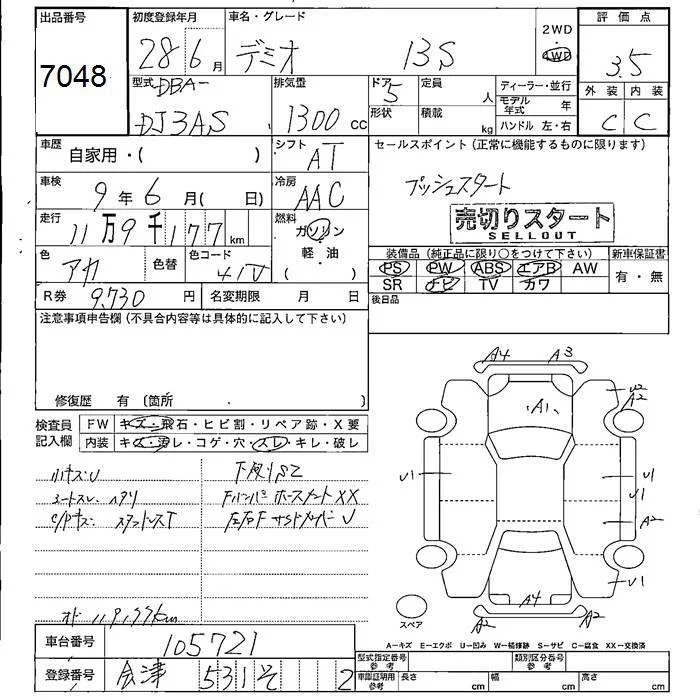 出品番号 初度登録年月 車名・グレード 2WD 評価点
7048 28 6月 デミオ 13S 4WD 3.5
型式 DBA- 排気量 ドア 5 定員 人 ディーラー・並行 外装 内装
DJ3AS 1300 cc 形状 積載 kg モデル年式 年 C C
ハンドル 左・右
車歴 自家用・( ) シフト AT セールスポイント(正常に機能するものに限ります)
車検 9年 6月( 日) 冷房 AAC プッシュスタート
走行 11万9千177km 燃料 ガソリン・軽・油 ( ) 売切りスタート
SELLOUT
色 アカ 色替 色コード 41V 装備品(純正品に限り○をつけて下さい) 新車保証書
PS PW ABS エアB AW 有・無
R券 9,730円 名変期限 月 日 SR ナビ TV カワ
注意事項申告欄(不具合内容等は具体的に記入して下さい) 後日品
修復歴 有 〔箇所 〕
検査員記入欄 FW キズ・飛石・ヒビ割・リペア跡・X要
内装 キズ・汚レ・コゲ・穴・スレ・キレ・破レ
リキズU 下廻りS2
シートスレ、ヘタリ
XX
オド 119,177km
A4 A3
U2
A2
A1
U1 U1
A2
U1
A4
A2 A2
スペア
A=キズ E=エクボ U=凹み W=補修跡 S=サビ C=腐食 XX=交換済
車台番号 105721
登録番号 会津 531 そ 2
型式指定番号 参考 類別区分番号 参考
車庫証明用 参考 長さ cm 幅 cm 高さ cm